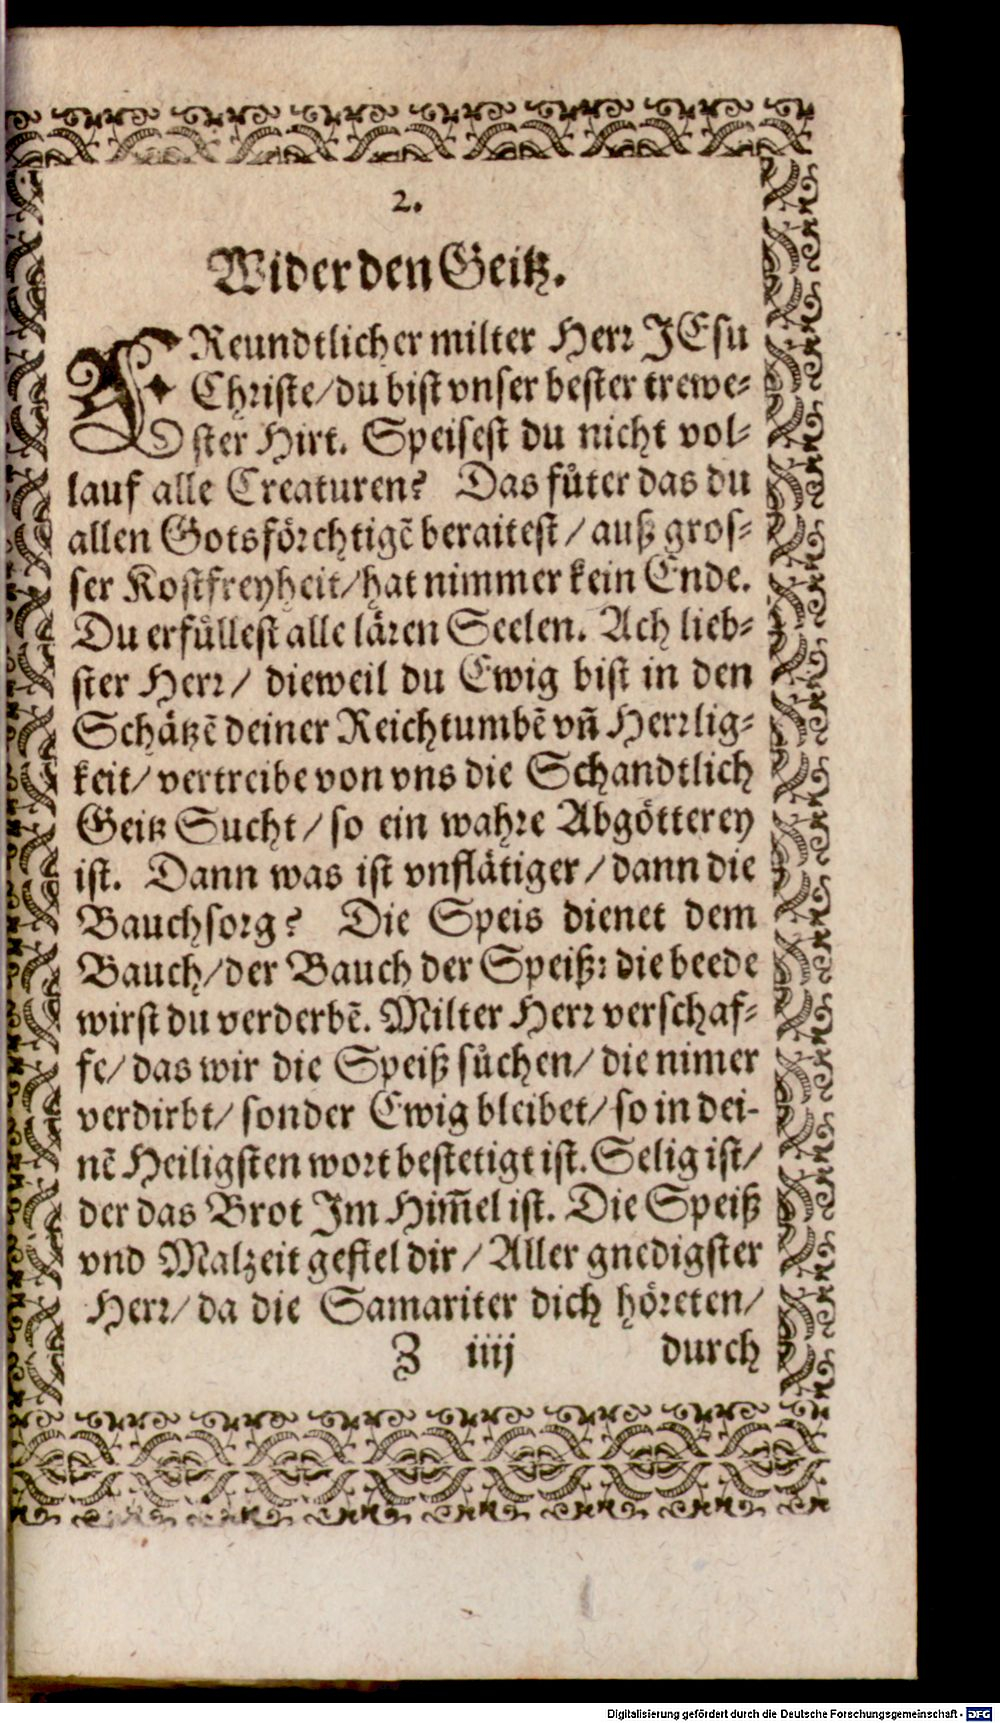 2.
Wider den Geitz.
FReundtlicher milter Herr JEsu
Christe/ du bist vnser bester trewe⸗
ster Hirt. Speisest du nicht vol⸗
lauf alle Creaturen? Das fůter das du
allen Gotsförchtigẽ beraitest/ auß gros⸗
ser Kostfreyheit/ hat nimmer kein Ende.
Du erfůllest alle lären Seelen. Ach lieb⸗
ster Herr/ dieweil du Ewig bist in den
Schätzẽ deiner Reichtumbẽ vñ Herrlig⸗
keit/ vertreibe von vns die Schandtlich
Geitz Sucht/ so ein wahre Abgötterey
ist. Dann was ist vnflätiger/ dann die
Bauchsorg? Die Speis dienet dem
Bauch/ der Bauch der Speiß: die beede
wirst du verderbẽ. Milter Herr verschaf⸗
fe/ das wir die Speiß sůchen/ die nimer
verdirbt/ sonder Ewig bleibet/ so in dei-
nẽ Heiligsten wort bestetigt ist. Selig ist/
der das Brot Im Him̃el ist. Die Speiß
vnd Malzeit gefiel dir/ Aller gnedigster
Herr/ da die Samariter dich höreten/
Z iiij durch
Digitalisierung gefördert durch die Deutsche Forschungsgemeinschaft - DFG